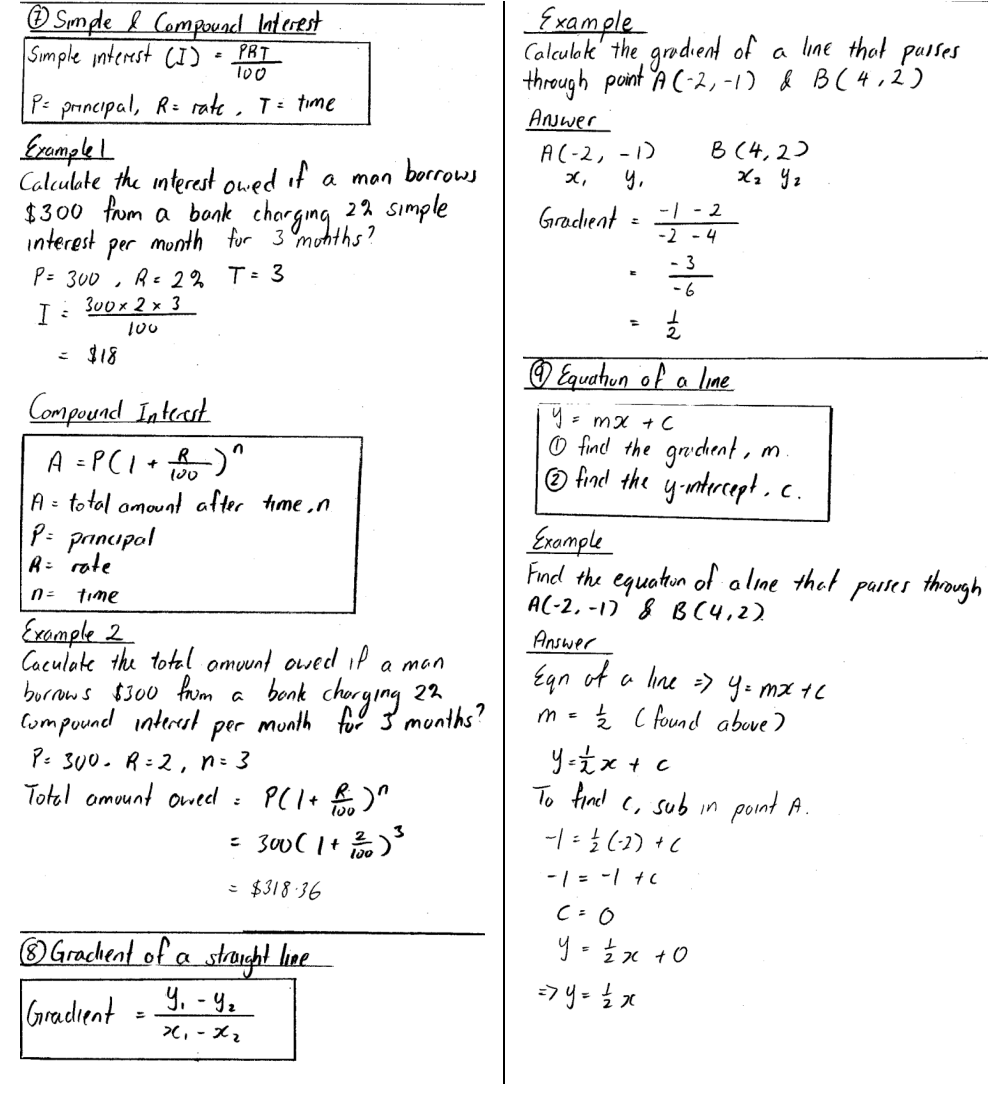 ⑦ Simple & Compound Interest
Simple interest (I) = PRT/100
P= principal, R= rate, T= time
Example 1
Calculate the interest owed if a man borrows
$300 from a bank charging 2% simple
interest per month for 3 months?
P= 300, R= 2% T= 3
I = 300 x 2 x 3/100
= $18
Compound Interest
A = P(1 + R/100)ⁿ
A = total amount after time, n
P= principal
R= rate
n= time
Example 2
Caculate the total amount owed if a man
borrows $300 from a bank charging 2%
compound interest per month for 3 months?
P= 300. R=2, n=3
Total amount owed = P(1+ R/100)ⁿ
= 300(1+ 2/100)³
= $318.36
⑧ Gradient of a straight line
Gradient = y₁ - y₂/x₁ - x₂
Example
Calculate the gradient of a line that passes
through point A(-2, -1) & B(4, 2)
Answer
A(-2, -1) B(4, 2)
x₁ y₁ x₂ y₂
Gradient = -1 - 2/-2 - 4
= -3/-6
= 1/2
⑨ Equation of a line
y = mx + c
① find the gradient, m.
② find the y-intercept, c.
Example
Find the equation of a line that passes through
A(-2, -1) & B(4, 2).
Answer
Eqn of a line => y= mx + c
m = 1/2 (found above)
y = 1/2 x + c
To find c, sub in point A.
-1 = 1/2 (-2) + c
-1 = -1 + c
c = 0
y = 1/2 x + 0
=> y = 1/2 x